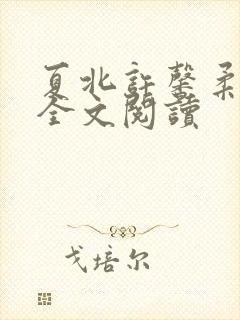 夏北許馨柔
全文閱讀
戈培尔